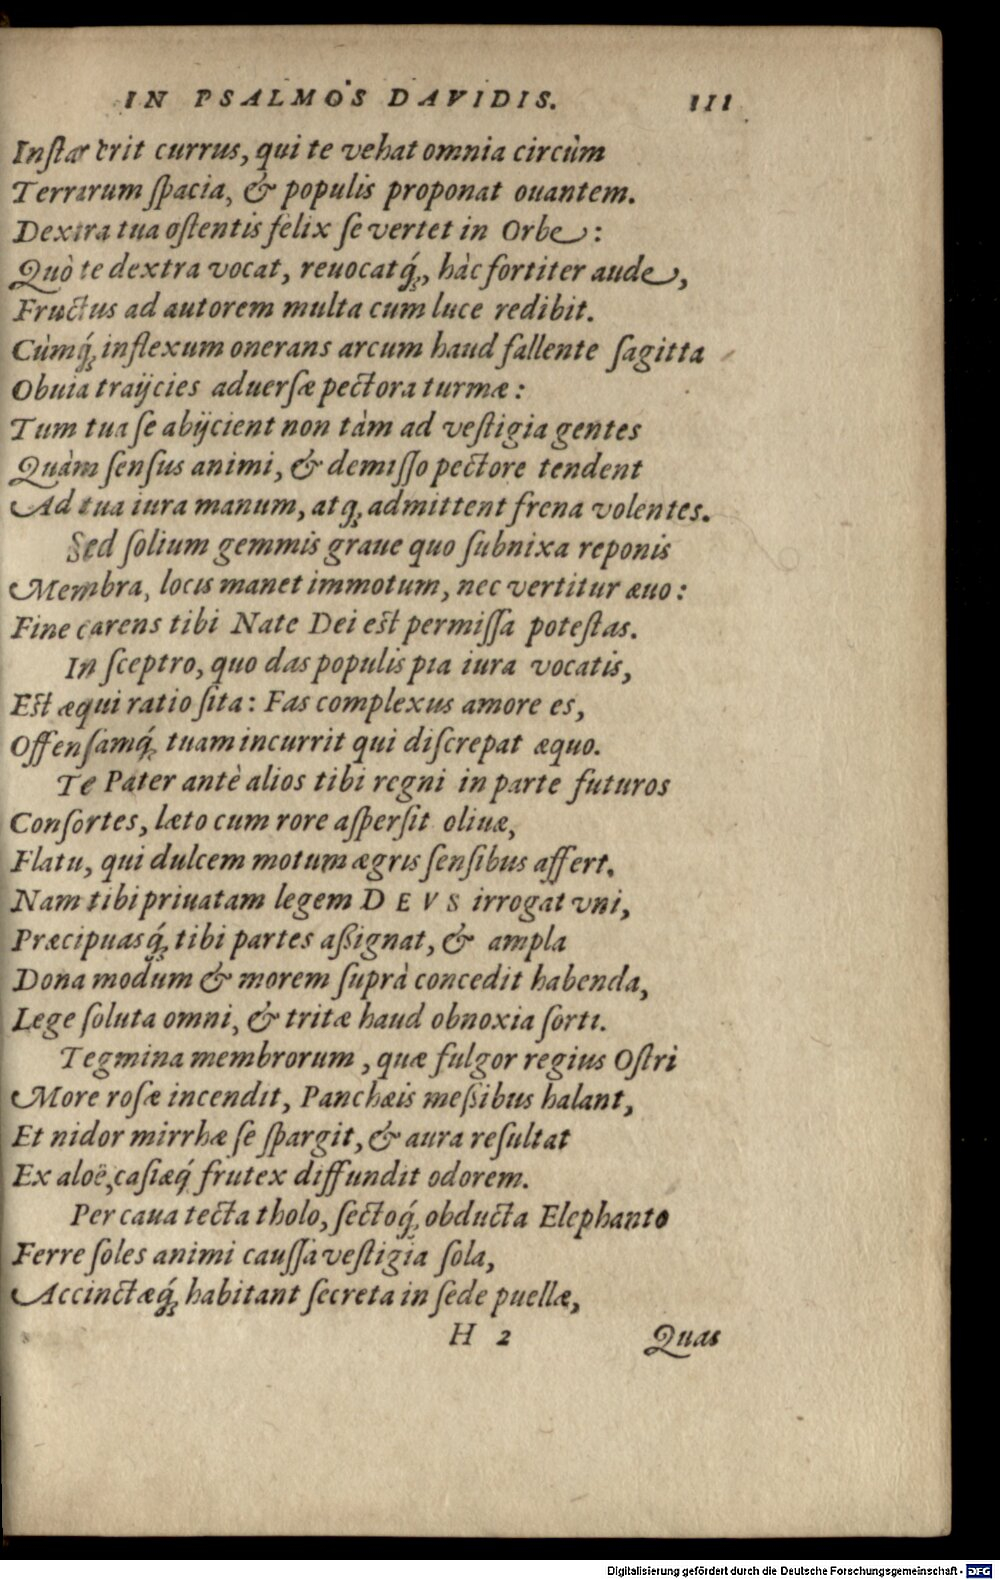 IN PSALMOS DAVIDIS. 111
Inſtar erit currus, qui te vehat omnia circùm
Terrarum ſpacia, & populis proponat ouantem.
Dextra tua oſtentis felix ſe vertet in Orbe:
Quò te dextra vocat, reuocatq́;, hàc fortiter aude,
Fructus ad autorem multa cum luce redibit.
Cùmq́; inflexum onerans arcum haud fallente ſagitta
Obuia traijcies aduerſæ pectora turmæ:
Tum tua ſe abijcient non tàm ad veſtigia gentes
Quàm ſenſus animi, & demiſſo pectore tendent
Ad tua iura manum, atq; admittent frena volentes.
Sed ſolium gemmis graue quo ſubnixa reponis
Membra, locis manet immotum, nec vertitur æuo:
Fine carens tibi Nate Dei eſt permiſſa poteſtas.
In ſceptro, quo das populis pia iura vocatis,
Eſt æqui ratio ſita: Fas complexus amore es,
Offenſamq́; tuam incurrit qui diſcrepat æquo.
Te Pater antè alios tibi regni in parte futuros
Conſortes, læto cum rore aſperſit oliuæ,
Flatu, qui dulcem motum ægris ſenſibus affert.
Nam tibi priuatam legem DEVS irrogat vni,
Præcipuasq́; tibi partes aßignat, & ampla
Dona modum & morem ſuprà concedit habenda,
Lege ſoluta omni, & tritæ haud obnoxia ſorti.
Tegmina membrorum, quæ fulgor regius Oſtri
More roſæ incendit, Panchæis meßibus halant,
Et nidor mirrhæ ſe ſpargit, & aura reſultat
Ex aloë, caſiæq́; frutex diffundit odorem.
Per caua tecta tholo, ſectoq́; obducta Elephanto
Ferre ſoles animi cauſſa veſtigia ſola,
Accinctæq́; habitant ſecreta in ſede puellæ,
H 2 Quas
Digitalisierung gefördert durch die Deutsche Forschungsgemeinschaft - DFG